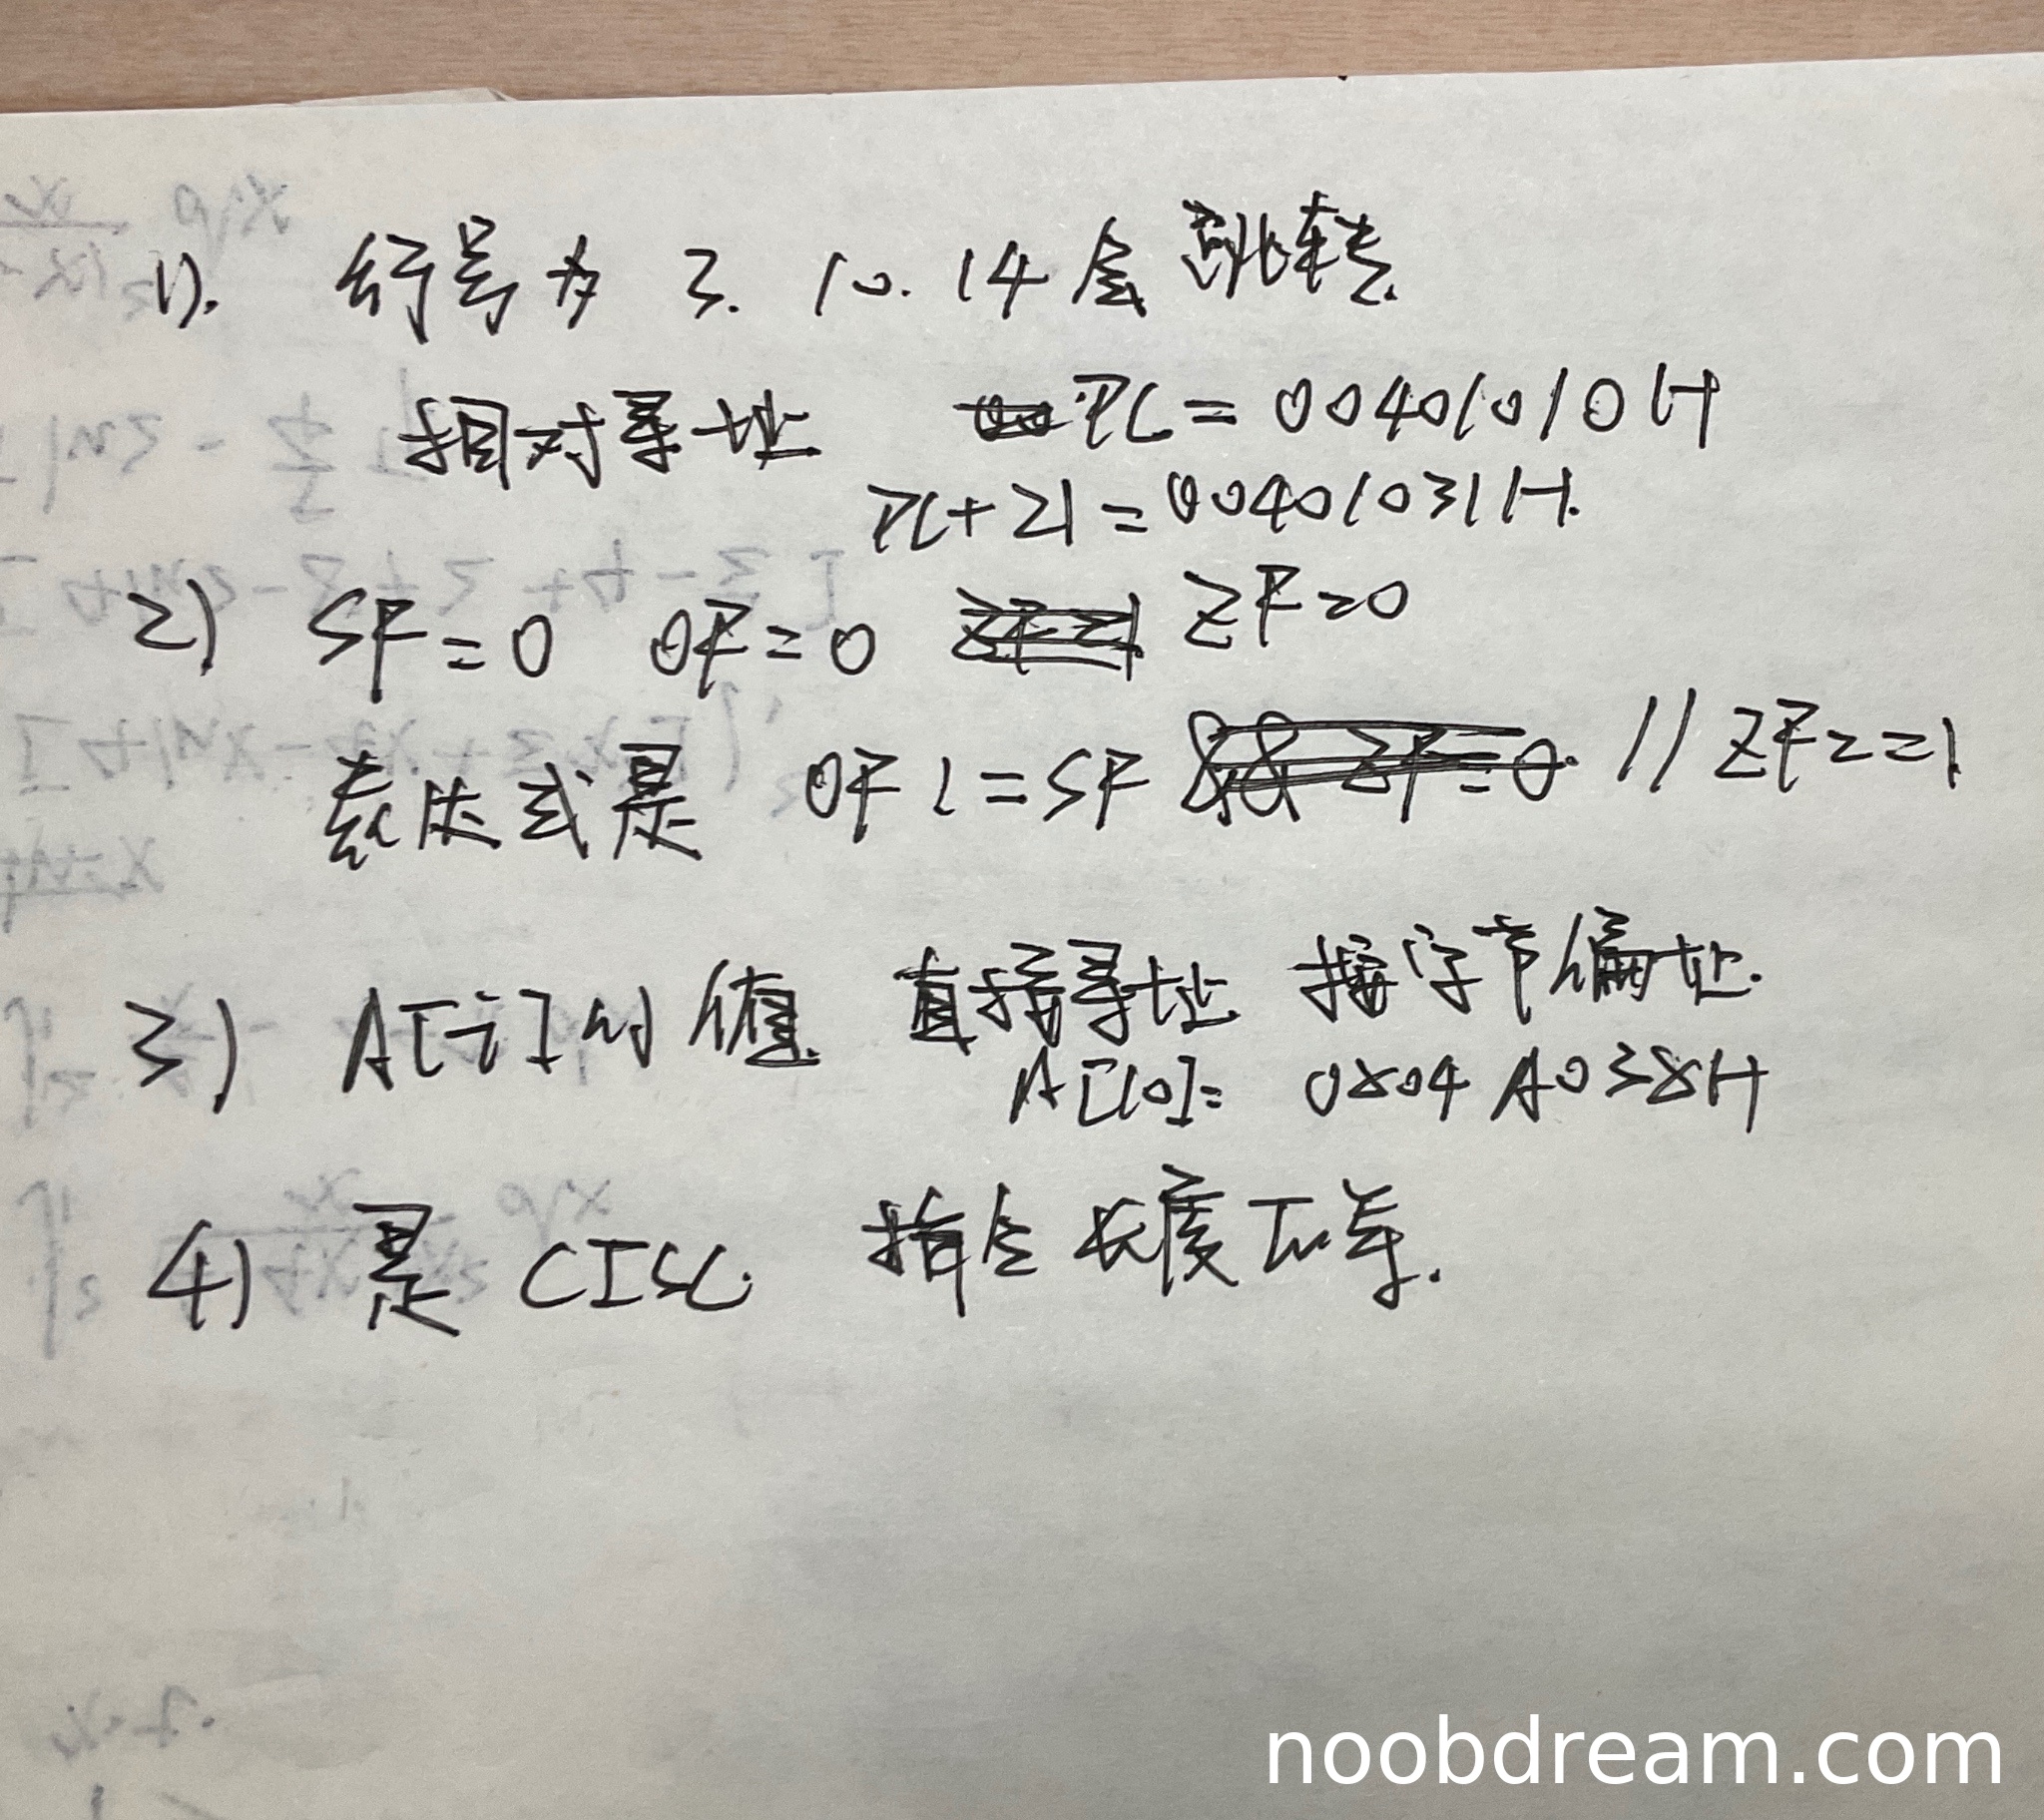 1). 行号为 3. 10. 14会跳转.
相对寻址 PC = 00401010H
PC+21 = 00401031H.
2) SF=0 OF=0 ZF=0
表达式是 OF != SF || ZF==1
3) A[i]的值. 直接寻址 按字节编址.
A[10]= 0804A038H
4) 是 CISC. 指令长度不等.
noobdream.com